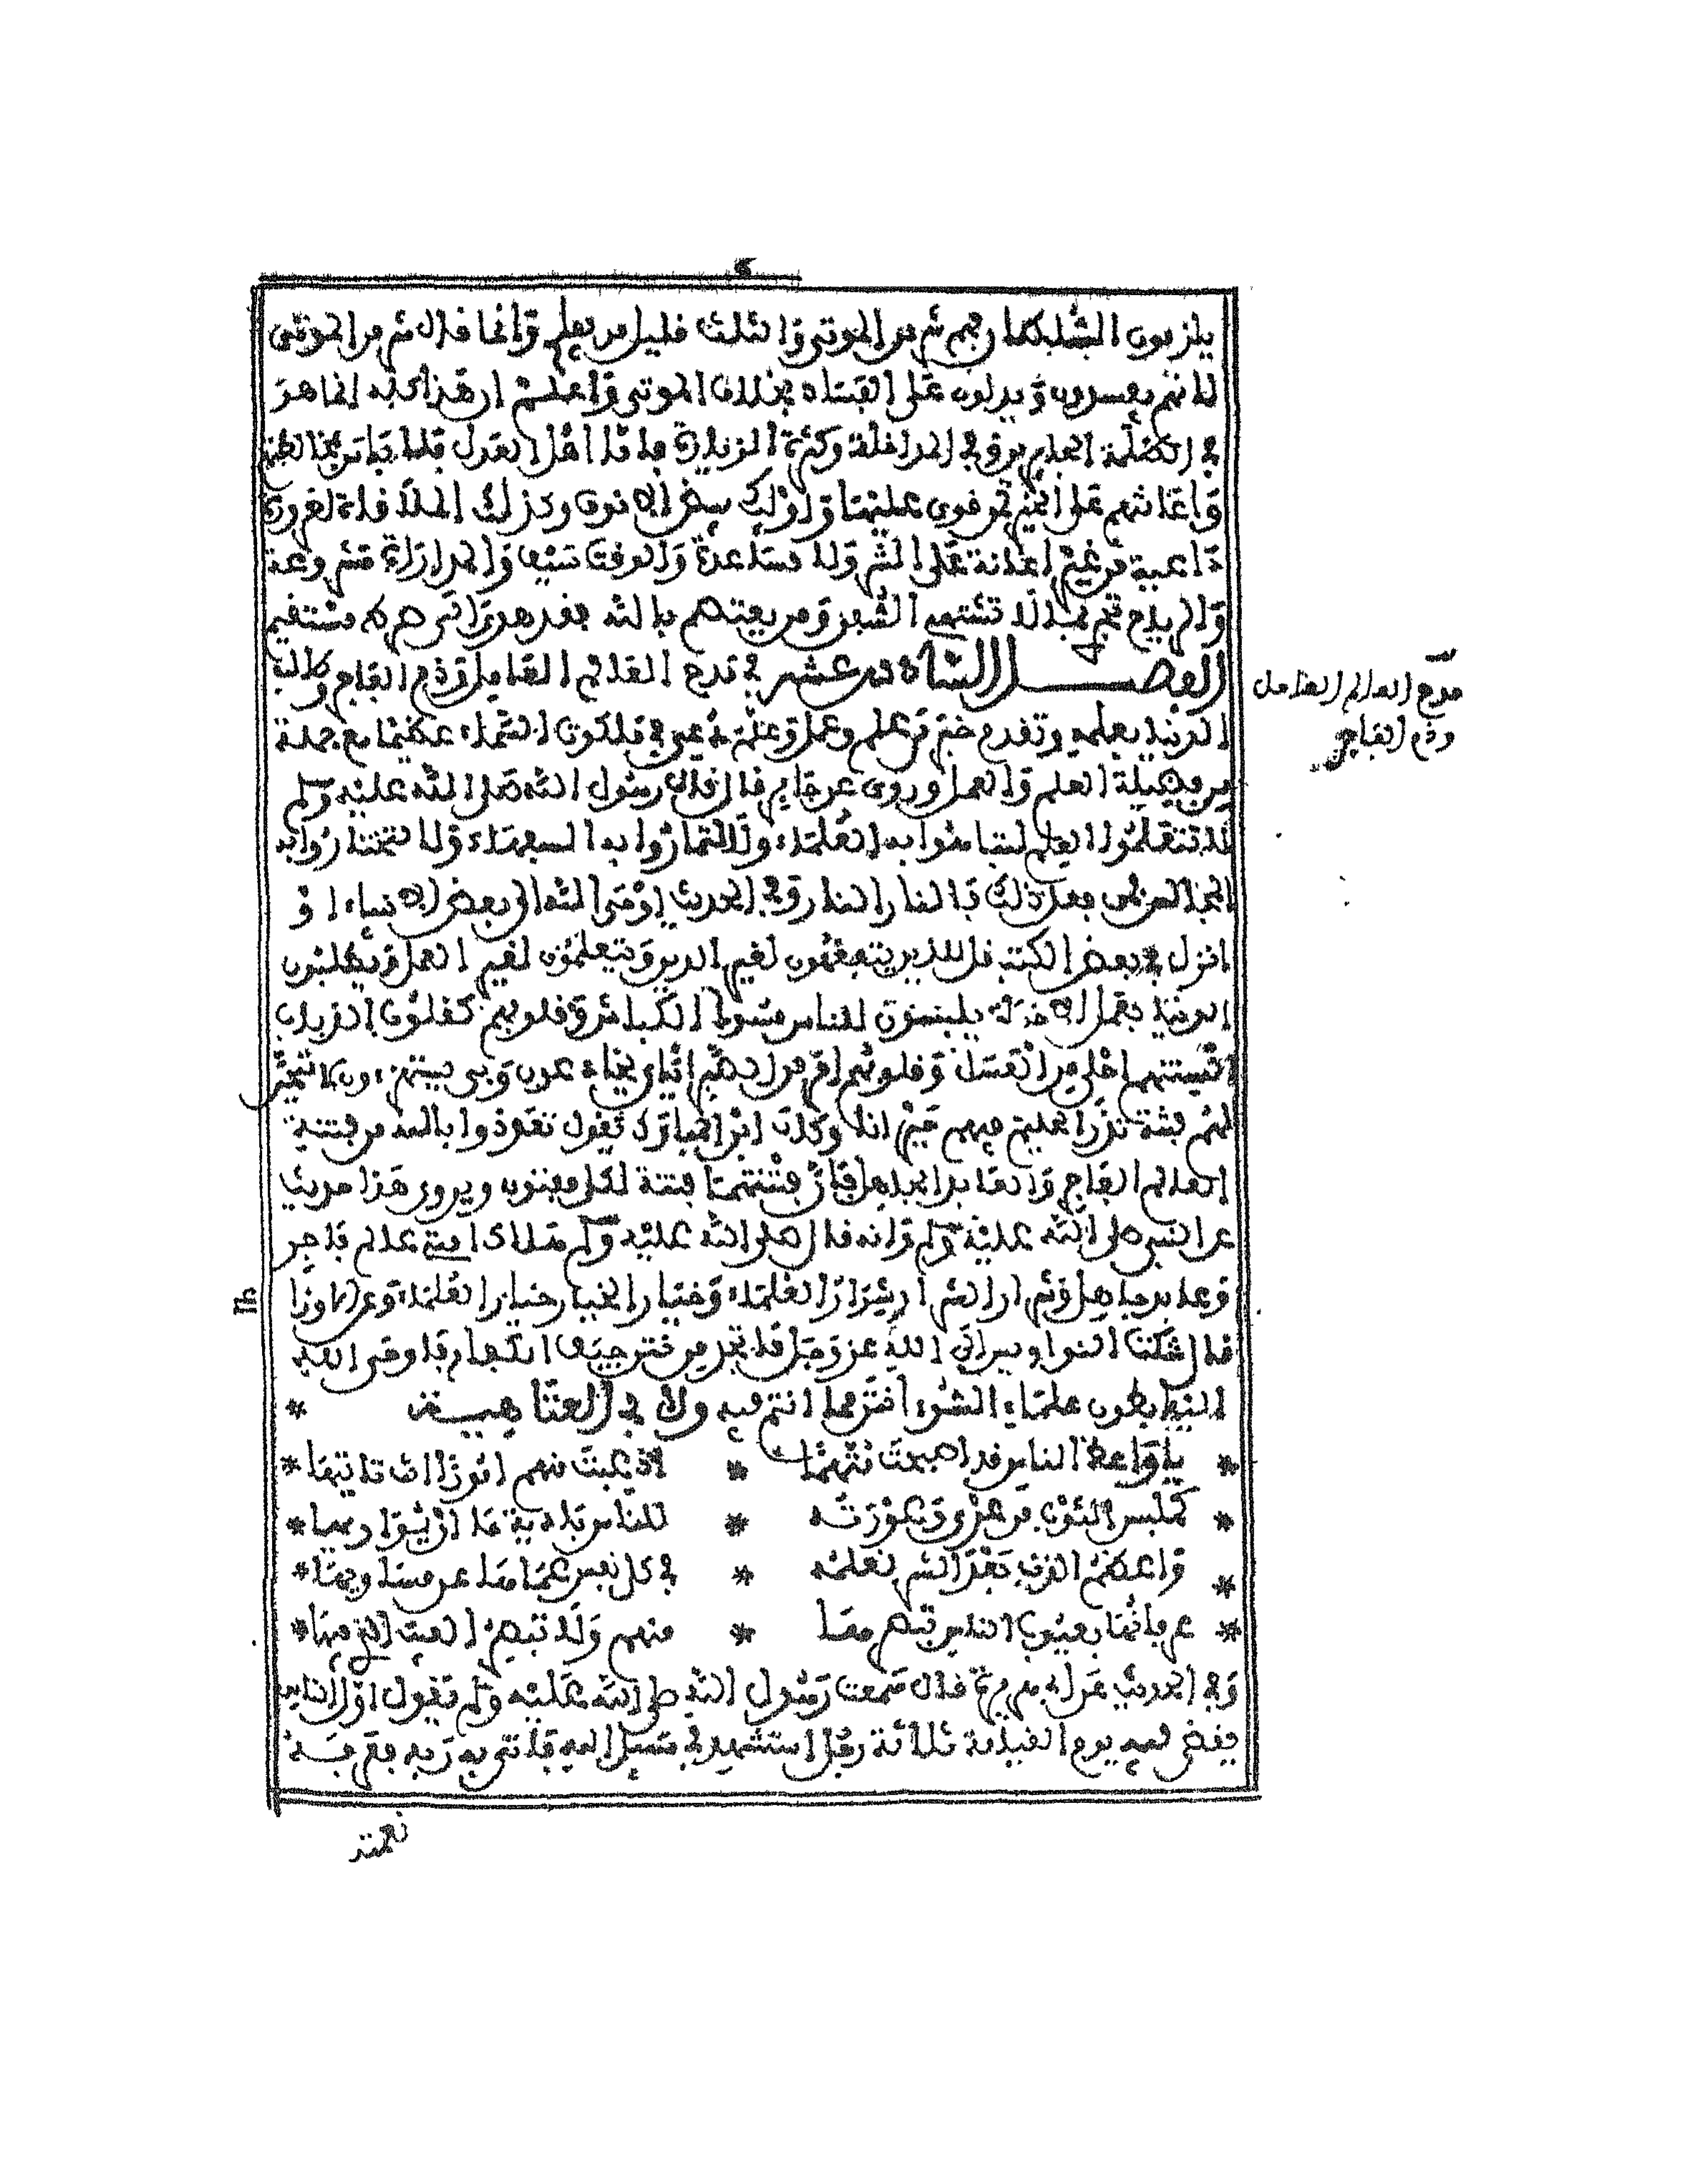 يلزمون السلطان فهم شر من الموتى والثلث قليل من يعلم وانما قال شر من الموتى
لانهم يفسدون ويدلون على الفساد بخلاف الموتى واعلم ان هذا كله انما هو
في الظلمة
واعانتهم على الخير
داعية من غير اعانة على الشر ولا مساعدة والوقت سيف والمداراة مشروعة
ومن يعتصم بالله فقد هدي الى صراط مستقيم
الفصل السادس عشر في مدح العالم العامل وذم الفاجر وطالب
الدنيا بعلمه وتقدم خبر من علم وعمل وعلم دعي في ملكوت السماء عظيما مع جملة
من فضيلة العلم والعمل وروي عن جابر قال قال رسول الله صلى الله عليه وسلم
لا تتعلموا العلم لتباهوا به العلماء ولا لتماروا به السفهاء ولا لتختاروا به
المجالس فمن فعل ذلك فالنار النار وفي الحديث اوحى الله الى بعض الانبياء او
انزل في بعض الكتب قل للذين يتفقهون لغير الدين ويتعلمون لغير العمل ويطلبون
الدنيا بعمل الاخرة يلبسون للناس مسوك الكباش وقلوبهم كقلوب الذياب
السنتهم احلى من العسل وقلوبهم امر من الصبر اياي يخادعون وبي يستهزءون لاتيحن
لهم فتنة تذر الحليم فيهم حيران وكان ابن المبارك يقول تعوذوا بالله من فتنة
العالم الفاجر والعابد الجاهل فان فتنتهما فتنة لكل مفتون ويروى هذا حديث
عن النبي صلى الله عليه وسلم وانه قال صلى الله عليه وسلم هلاك امتي عالم فاجر
وعابد جاهل وشر الشر اشرار العلماء وخيار الخيار خيار العلماء وعن الاوزا
قال شكت النواويس الى الله عز وجل ما تجد من نتن جيف الكفار فاوحى الله
اليها بطون علماء السوء انتن مما انتم فيه ولابي العتاهية *
* يا واعظ الناس قد اصبحت متهما * اذ عبت منهم امورا انت تاتيها *
* كملبس الثوب من عري وعورته * للناس بادية ما ان يواريها *
* واعظم الذنب بعد الشر نعلمه * في كل نفس عماها عن مساويها *
* عرفانها بعيوب الناس تبصرها * منهم ولا تبصر العيب الذي فيها *
وفي الحديث عن ابي هريرة قال سمعت رسول الله صلى الله عليه وسلم يقول اول الناس
يقضى فيه يوم القيامة ثلاثة رجل استشهد في سبيل الله فاتي به ربه فعرفه
نعمته
مدح العالم العامل
وذم الفاجر